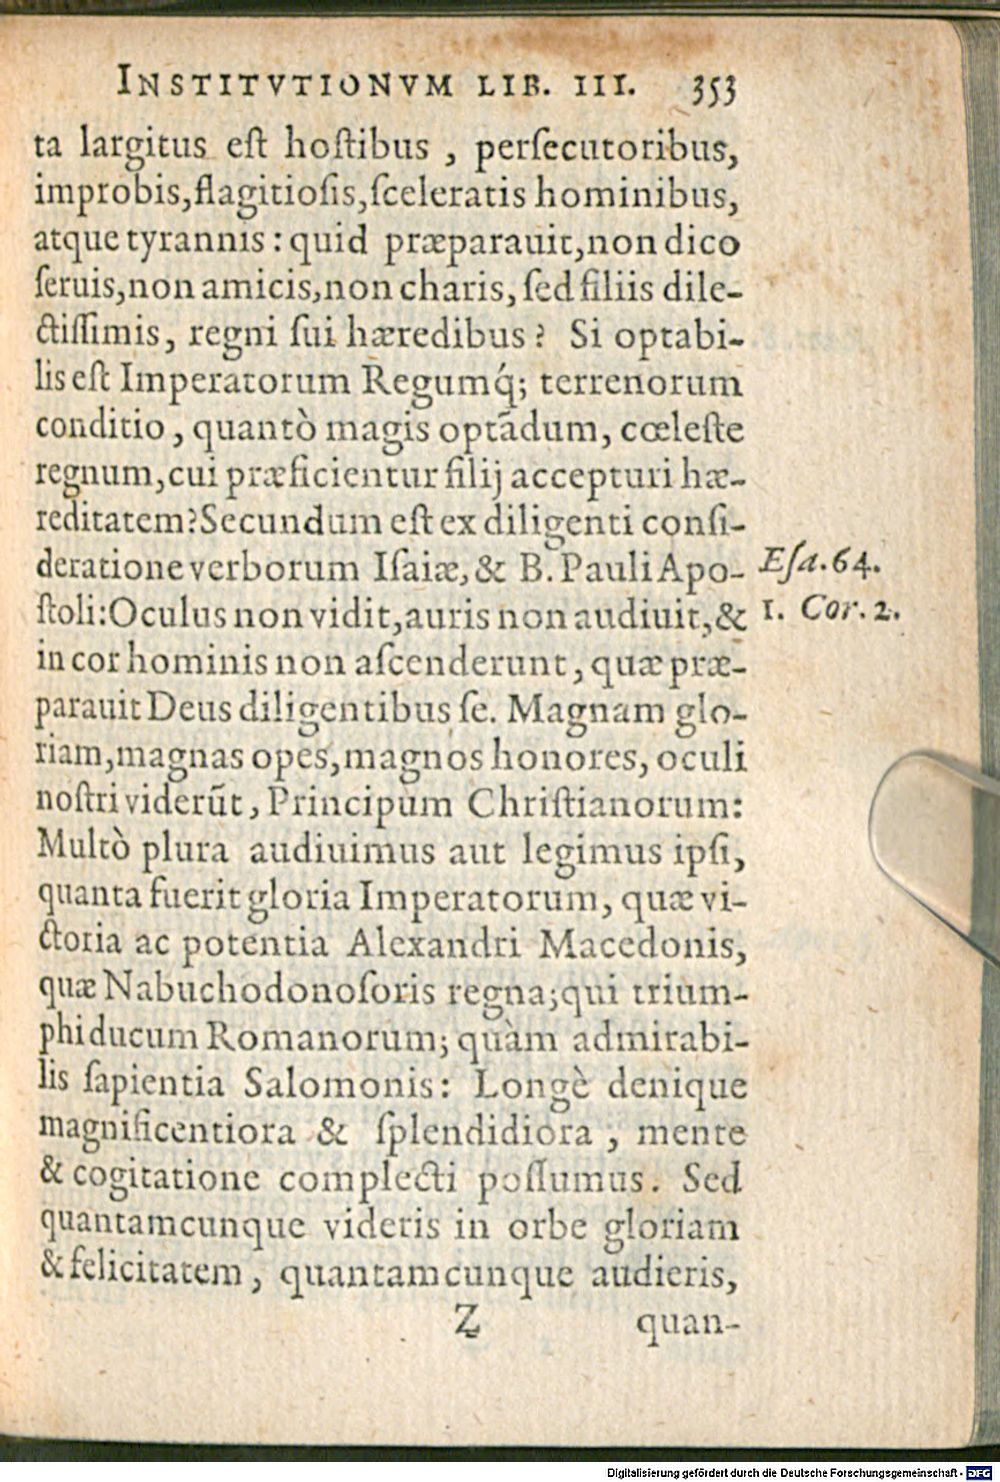 INSTITVTIONVM LIB. III. 353
ta largitus est hostibus , persecutoribus,
improbis,flagitiosis,sceleratis hominibus,
atque tyrannis : quid præparauit,non dico
seruis,non amicis,non charis, sed filiis dile-
ctissimis, regni sui hæredibus ? Si optabi-
lis est Imperatorum Regumq́; terrenorum
conditio , quantò magis optãdum, cœleste
regnum,cui præficientur filij accepturi hæ-
reditatem?Secundum est ex diligenti consi-
deratione verborum Isaiæ, & B. Pauli Apo-
Esa.64.
stoli:Oculus non vidit,auris non audiuit,&
1. Cor. 2.
in cor hominis non ascenderunt , quæ præ-
parauit Deus diligentibus se. Magnam glo-
riam,magnas opes,magnos honores, oculi
nostri viderũt , Principum Christianorum:
Multò plura audiuimus aut legimus ipsi,
quanta fuerit gloria Imperatorum, quæ vi-
ctoria ac potentia Alexandri Macedonis,
quæ Nabuchodonosoris regna;qui trium-
phi ducum Romanorum; quàm admirabi-
lis sapientia Salomonis: Longè denique
magnificentiora & splendidiora , mente
& cogitatione complecti possumus. Sed
quantamcunque videris in orbe gloriam
& felicitatem , quantamcunque audieris,
Z quan-
Digitalisierung gefördert durch die Deutsche Forschungsgemeinschaft - DFG